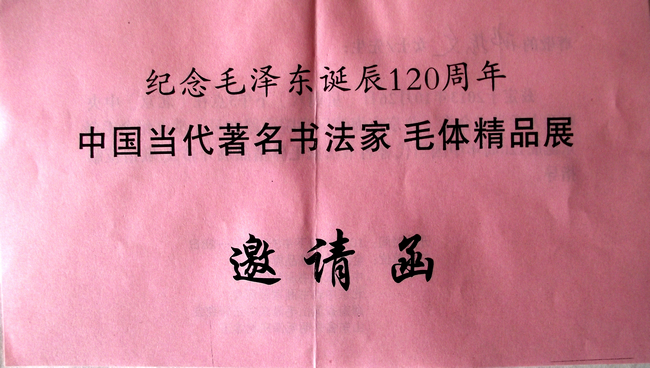 纪念毛泽东诞辰120周年
中国当代著名书法家 毛体精品展
邀请函